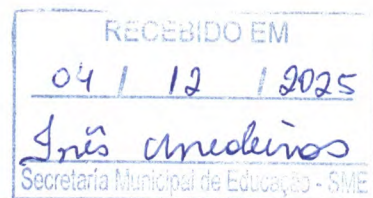 RECEBIDO EM
04 / 12 / 2025
Inês Medeiros
Secretaria Municipal de Educação - SME